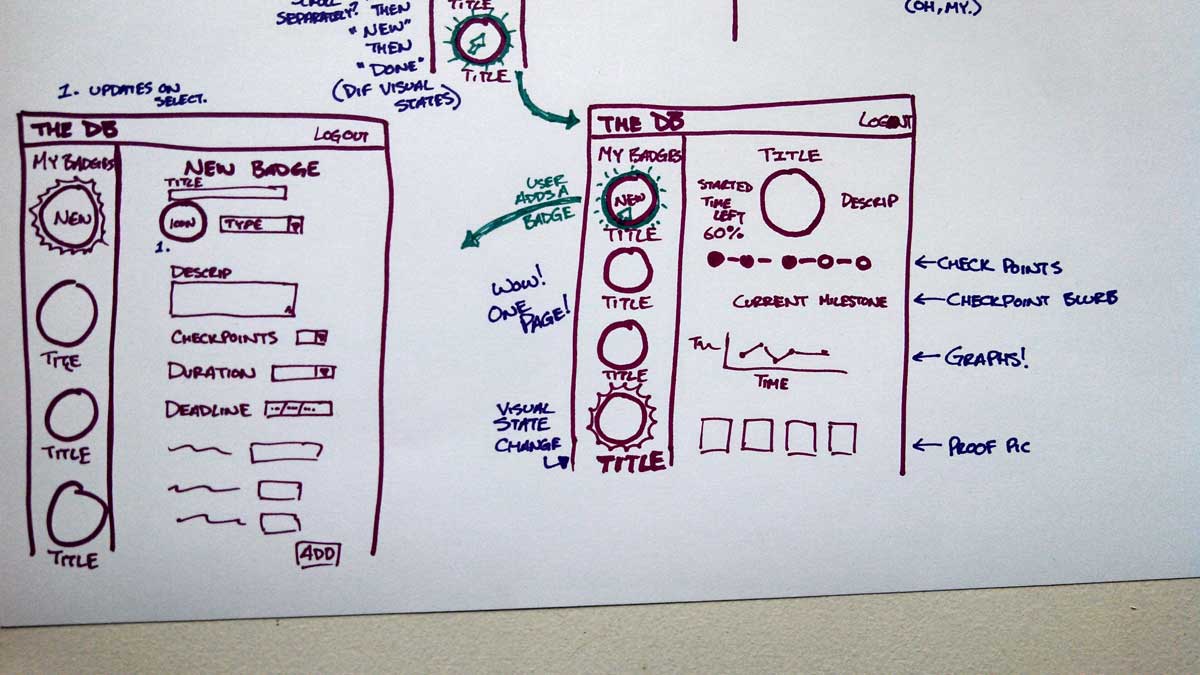 SCROLL
SEPARATELY? THEN
"NEW"
THEN
"DONE"
(DIF VISUAL
STATES)
TITLE
TITLE
(OH, MY.)
1. UPDATES ON
SELECT.
THE DB
LOGOUT
MY BADGES
NEW
TITLE
TITLE
TITLE
NEW BADGE
TITLE
ICON
TYPE
1.
DESCRIP
CHECKPOINTS
DURATION
DEADLINE
--/--/--
ADD
USER
ADDS A
BADGE
WOW!
ONE
PAGE!
VISUAL
STATE
CHANGE
THE DB
LOGOUT
MY BADGES
NEW
TITLE
TITLE
TITLE
TITLE
TITLE
STARTED
TIME
LEFT
60%
DESCRIP
CURRENT MILESTONE
TIME
CHECK POINTS
CHECKPOINT BLURB
GRAPHS!
PROOF PIC